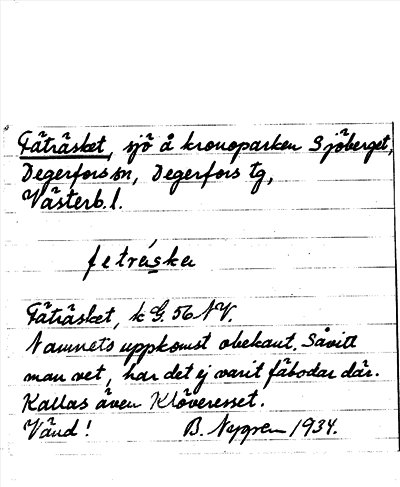 Fäträsket, sjö å kronoparken Sjöberget,
Degerfors sn, Degerfors tg,
Västerb. l.
fetráska
Fäträsket, k G. 56 NV.
Namnets uppkomst obekant. Såvitt
man vet, har det ej varit fäbodar där.
Kallas även Klöveresset.
Vänd! B. Nygren 1934.